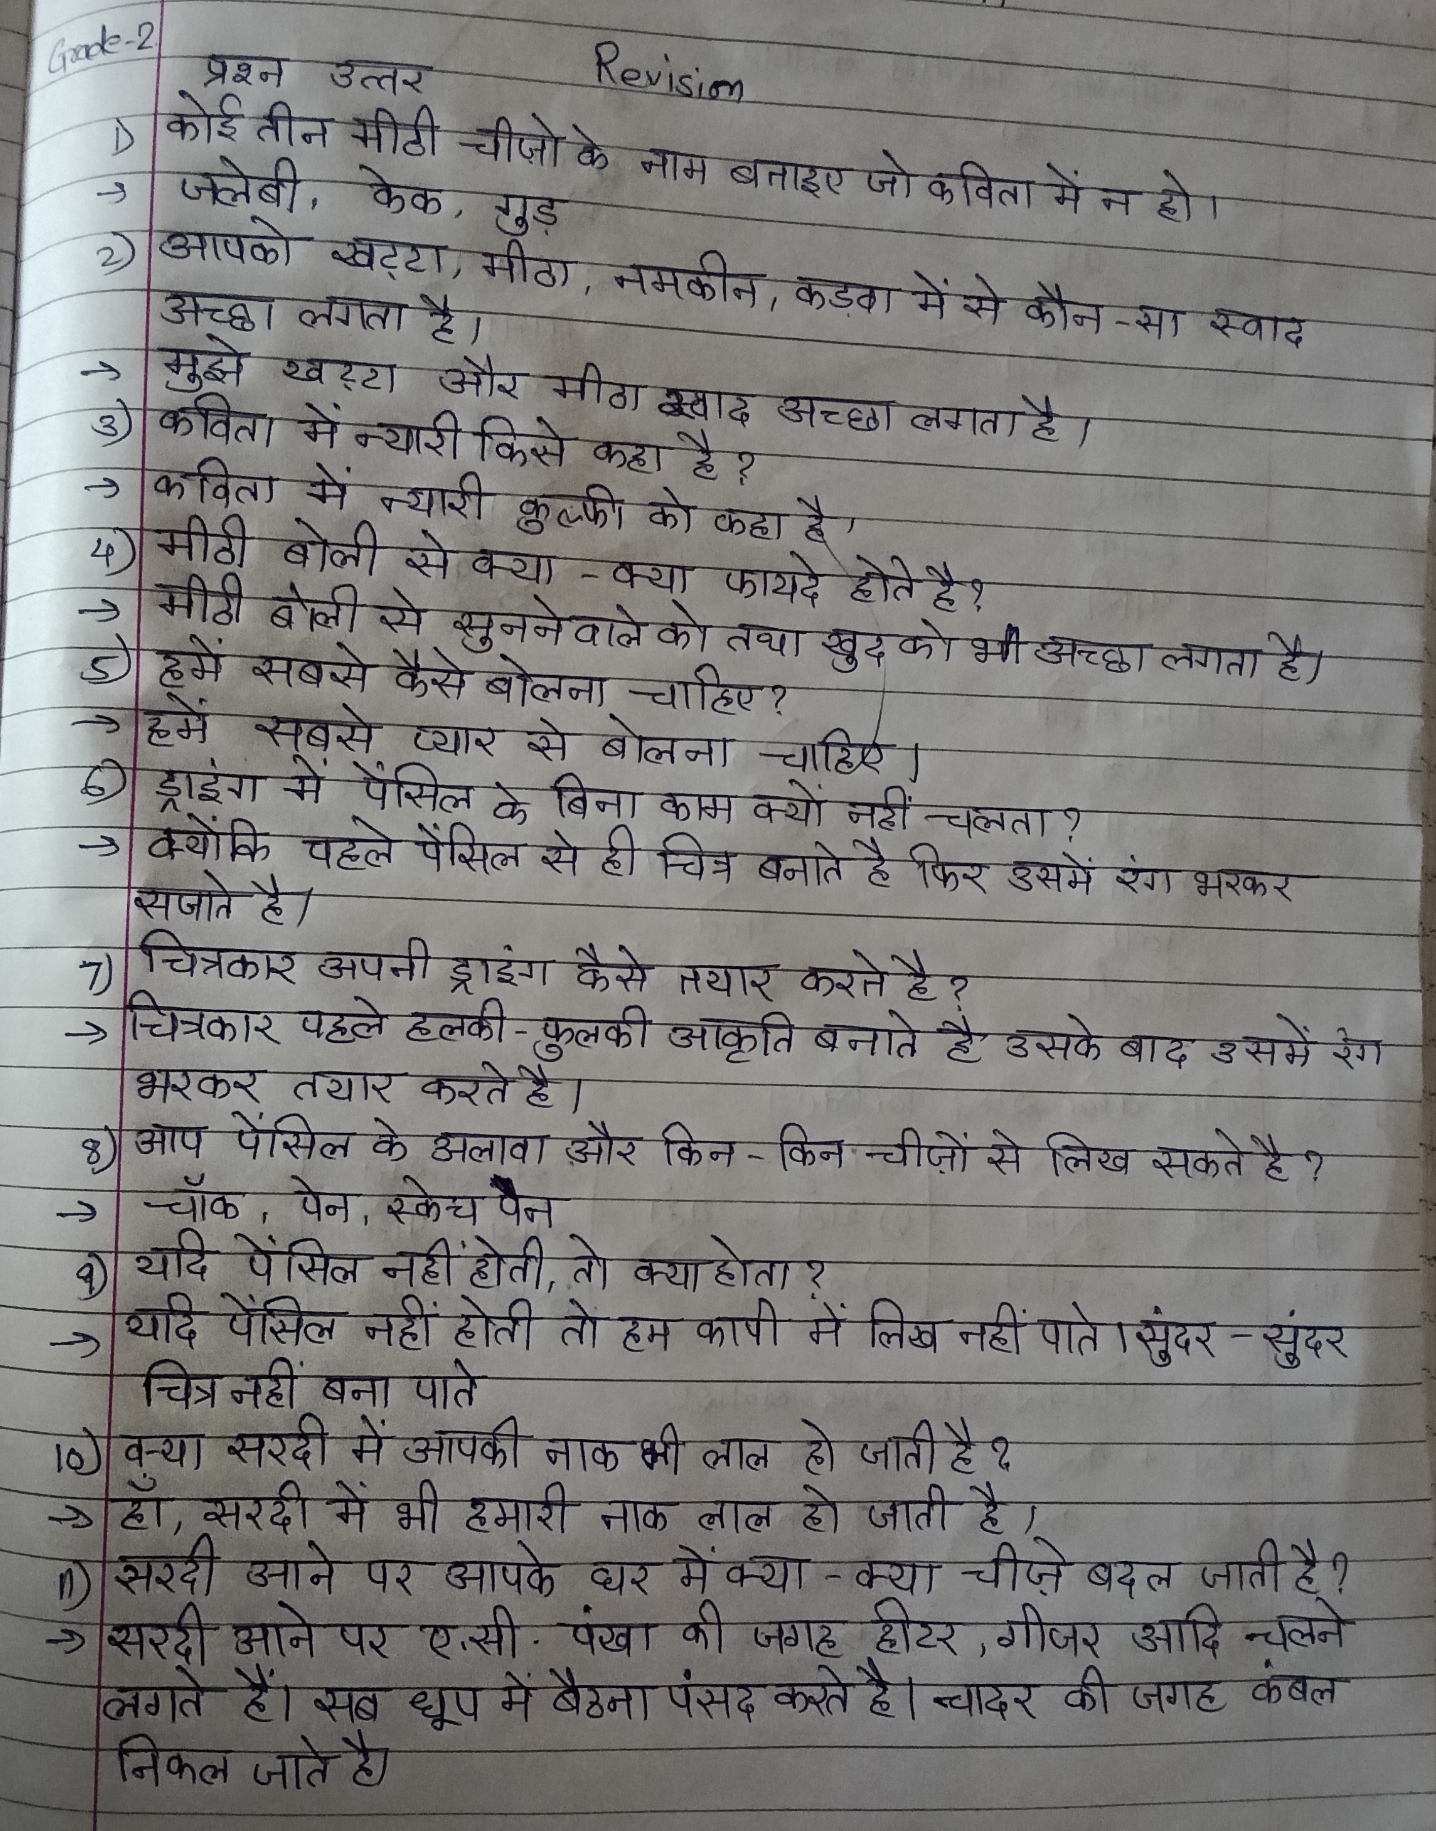 Grade-2
प्रश्न उत्तर Revision
1) कोई तीन मीठी चीज़ो के नाम बताइए जो कविता में न हो।
→ जलेबी, केक, गुड़
2) आपको खट्टा, मीठा, नमकीन, कड़वा में से कौन-सा स्वाद
अच्छा लगता है।
→ मुझे खट्टा और मीठा स्वाद अच्छा लगता है।
3) कविता में न्यारी किसे कहा है?
→ कविता में न्यारी कुल्फी को कहा है।
4) मीठी बोली से क्या-क्या फायदे होते है?
→ मीठी बोली से सुनने वाले को तथा खुद को भी अच्छा लगता है।
5) हमें सबसे कैसे बोलना चाहिए?
→ हमें सबसे प्यार से बोलना चाहिए।
6) ड्राइंग में पेंसिल के बिना काम क्यों नहीं चलता?
→ क्योंकि पहले पेंसिल से ही चित्र बनाते है फिर उसमें रंग भरकर
सजाते है।
7) चित्रकार अपनी ड्राइंग कैसे तयार करते है?
→ चित्रकार पहले हलकी-फुलकी आकृति बनाते है उसके बाद उसमें रंग
भरकर तयार करते है।
8) आप पेंसिल के अलावा और किन-किन चीज़ों से लिख सकते है?
→ चॉक, पेन, स्केच पेन
9) यदि पेंसिल नहीं होती, तो क्या होता?
→ यदि पेंसिल नहीं होती तो हम कापी में लिख नहीं पाते। सुंदर-सुंदर
चित्र नहीं बना पाते
10) क्या सरदी में आपकी नाक भी लाल हो जाती है?
→ हाँ, सरदी में भी हमारी नाक लाल हो जाती है।
11) सरदी आने पर आपके घर में क्या-क्या चीज़े बदल जाती है?
→ सरदी आने पर ए.सी. पंखा की जगह हीटर, गीजर आदि चलने
लगते हैं। सब धूप में बैठना पंसद करते है। चादर की जगह कंबल
निकल जाते है।